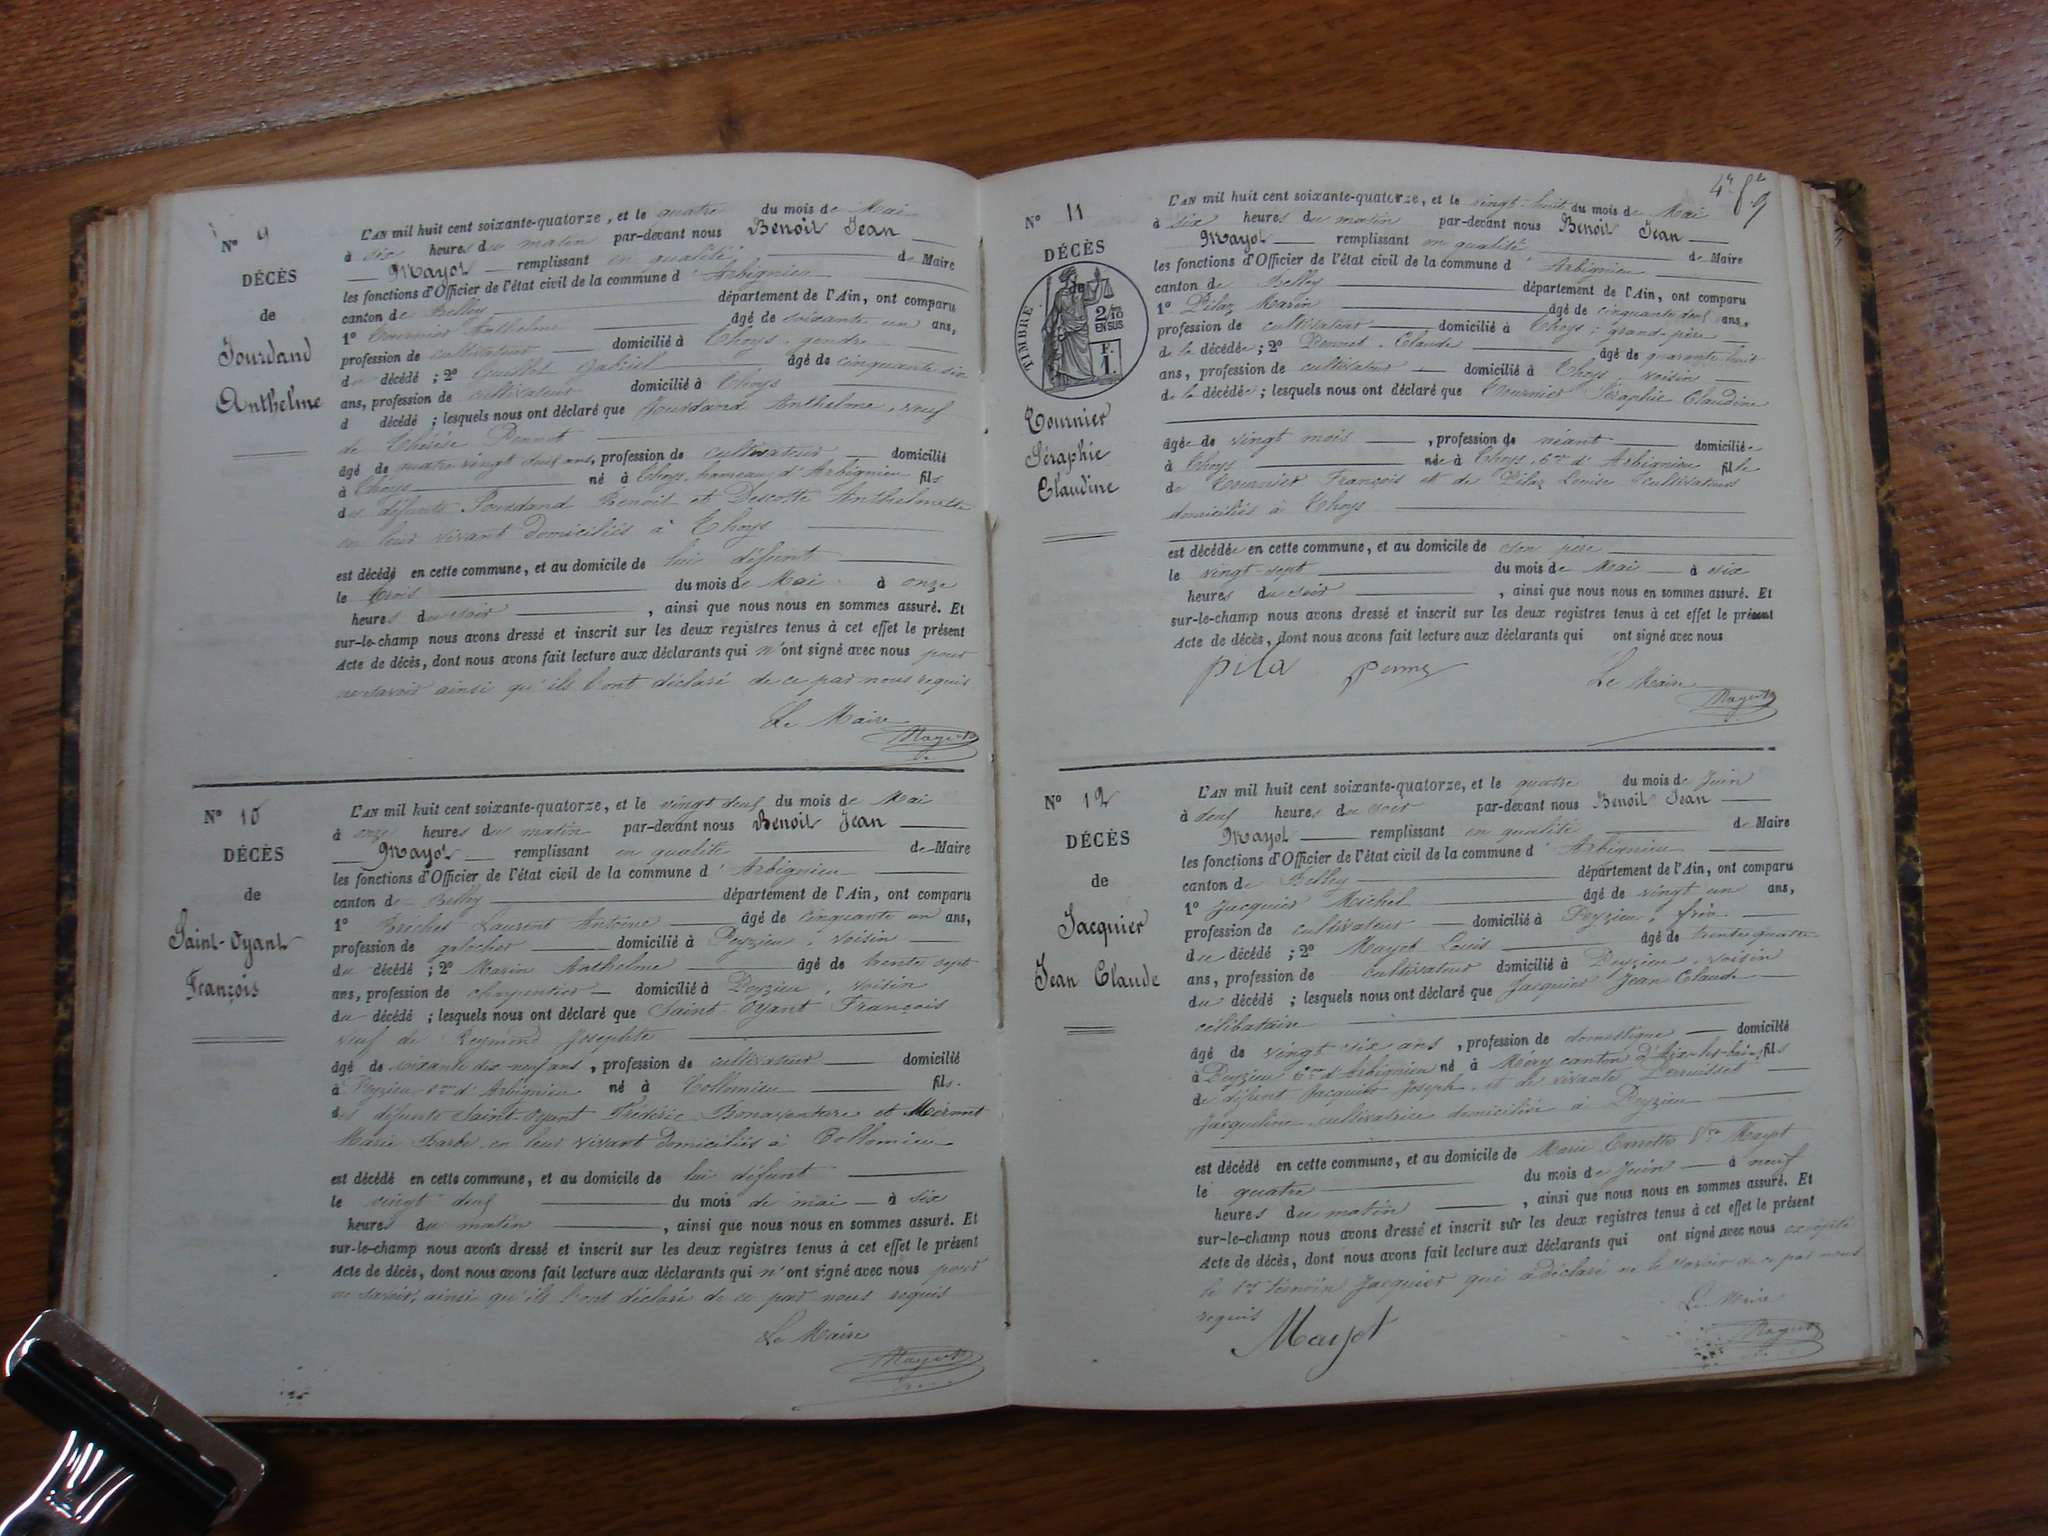 N° 9
DÉCÈS
de
Jourdand
Anthelme
L'AN mil huit cent soixante-quatorze, et le quatre du mois de Mai
à six heures du matin par-devant nous Benoit Jean
Mayot remplissant en qualité de Maire
les fonctions d'Officier de l'état civil de la commune d'Arbignieu
canton de Belley département de l'Ain, ont comparu
1° Tournier Anthelme âgé de soixante un ans,
profession de cultivateur domicilié à Thoys, gendre
du décédé ; 2° Guillot Gabriel âgé de cinquante six
ans, profession de cultivateur domicilié à Thoys
d décédé ; lesquels nous ont déclaré que Jourdand Anthelme, veuf
de Thérèse Pennet
âgé de quatre vingt deux ans, profession de cultivateur domicilié
à Thoys né à Thoys, hameau d'Arbignieu fils
des défunts Jourdand Benoit et Descotte Anthelmette
en leur vivant domiciliés à Thoys
est décédé en cette commune, et au domicile de lui défunt
le trois du mois de Mai à onze
heures du soir , ainsi que nous nous en sommes assuré. Et
sur-le-champ nous avons dressé et inscrit sur les deux registres tenus à cet effet le présent
Acte de décès, dont nous avons fait lecture aux déclarants qui n'ont signé avec nous pour
ne savoir ainsi qu'ils l'ont déclaré de ce par nous requis
Le Maire
Mayot
N° 10
DÉCÈS
de
Saint-Oyant
François
L'AN mil huit cent soixante-quatorze, et le vingt deux du mois de Mai
à onze heures du matin par-devant nous Benoit Jean
Mayot remplissant en qualité de Maire
les fonctions d'Officier de l'état civil de la commune d'Arbignieu
canton de Belley département de l'Ain, ont comparu
1° Laurent Antoine âgé de cinquante un ans,
profession de galocher domicilié à Peyzieu, voisin
du décédé ; 2° Marin Anthelme âgé de trente sept
ans, profession de charpentier domicilié à Peyzieu, voisin
du décédé ; lesquels nous ont déclaré que Saint-Oyant François
veuf de Reymond Josephte
âgé de soixante dix neuf ans, profession de cultivateur domicilié
à Peyzieu Cne d'Arbignieu né à Collomieu fils
des défunts Saint-Oyant Frédéric Bonaventure et Mermet
Marie Barbe en leur vivant domiciliés à Collomieu
est décédé en cette commune, et au domicile de lui défunt
le vingt deux du mois de mai à six
heures du matin , ainsi que nous nous en sommes assuré. Et
sur-le-champ nous avons dressé et inscrit sur les deux registres tenus à cet effet le présent
Acte de décès, dont nous avons fait lecture aux déclarants qui n'ont signé avec nous pour
ne savoir, ainsi qu'ils l'ont déclaré de ce par nous requis
Le Maire
Mayot
4e fe
9
N° 11
DÉCÈS
de
TIMBRE
2/10
EN SUS
F.
1.
Tournier
Séraphie
Claudine
L'AN mil huit cent soixante-quatorze, et le vingt-huit du mois de Mai
à six heures du matin par-devant nous Benoit Jean
Mayot remplissant en qualité de Maire
les fonctions d'Officier de l'état civil de la commune d'Arbignieu
canton de Belley département de l'Ain, ont comparu
1° Pilaz Marin âgé de cinquante deux ans,
profession de cultivateur domicilié à Thoys, grand-père
de la décédée ; 2° Pennet Claude âgé de quarante huit
ans, profession de cultivateur domicilié à Thoys, voisin
de la décédée ; lesquels nous ont déclaré que Tournier Séraphie Claudine
âgée de vingt mois , profession de néant domiciliée
à Thoys née à Thoys, Cne d'Arbignieu fille
de Tournier François et de Pilaz Louise cultivateurs
domiciliés à Thoys
est décédée en cette commune, et au domicile de son père
le vingt-sept du mois de Mai à six
heures du soir , ainsi que nous nous en sommes assuré. Et
sur-le-champ nous avons dressé et inscrit sur les deux registres tenus à cet effet le présent
Acte de décès, dont nous avons fait lecture aux déclarants qui ont signé avec nous
pila
Le Maire
Mayot
N° 12
DÉCÈS
de
Jacquier
Jean Claude
L'AN mil huit cent soixante-quatorze, et le quatre du mois de Juin
à deux heures du soir par-devant nous Benoit Jean
Mayot remplissant en qualité de Maire
les fonctions d'Officier de l'état civil de la commune d'Arbignieu
canton de Belley département de l'Ain, ont comparu
1° Jacquier Michel âgé de vingt un ans,
profession de cultivateur domicilié à Peyzieu, frère
du décédé ; 2° Mayot Louis âgé de trente quatre
ans, profession de cultivateur domicilié à Peyzieu, voisin
du décédé ; lesquels nous ont déclaré que Jacquier Jean Claude
célibataire
âgé de vingt six ans , profession de domestique domicilié
à Peyzieu Cne d'Arbignieu né à Méry canton d'Aix-les-bains, fils
de défunt Jacquier Joseph, et de vivante
Jacqueline cultivatrice domiciliée à Peyzieu
est décédé en cette commune, et au domicile de Marie Mayot
le quatre du mois de Juin à neuf
heures du matin , ainsi que nous nous en sommes assuré. Et
sur-le-champ nous avons dressé et inscrit sur les deux registres tenus à cet effet le présent
Acte de décès, dont nous avons fait lecture aux déclarants qui ont signé avec nous excepté
le 1er témoin Jacquier qui a déclaré ne le savoir de ce par nous
requis
Mayot
Le Maire
Mayot